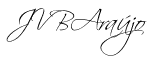 JVBAraújo